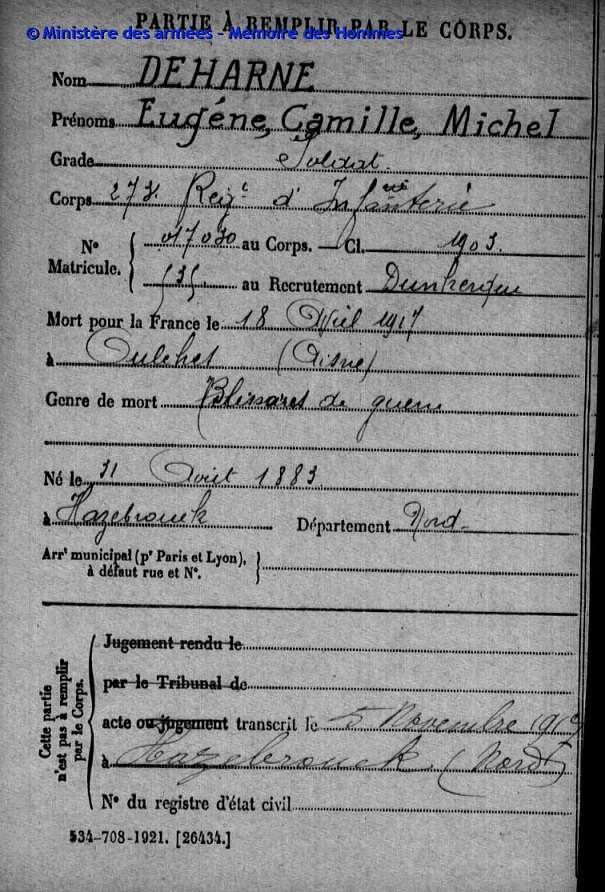 PARTIE À REMPLIR PAR LE CORPS.
© Ministère des armées - Mémoire des Hommes
Nom DEHARNE
Prénoms Eugéne, Camille, Michel
Grade Soldat.
Corps 273e Regt d'Infanterie
N° Matricule. 017030 au Corps. — Cl. 1903.
535. au Recrutement Dunkerque
Mort pour la France le 18 Avril 1917
à Oulches (Aisne)
Genre de mort Blessures de guerre
Né le 31 Août 1883
à Hazebrouck Département Nord
Arrt municipal (pr Paris et Lyon),
à défaut rue et N°.
Cette partie n'est pas à remplir par le Corps.
Jugement rendu le
par le Tribunal de
acte ou jugement transcrit le 5 Novembre
à Hazebrouck. (Nord)
N° du registre d'état civil
534-708-1921. [26434.]